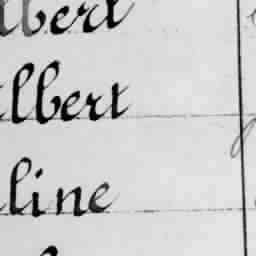 lbert
lbert
line